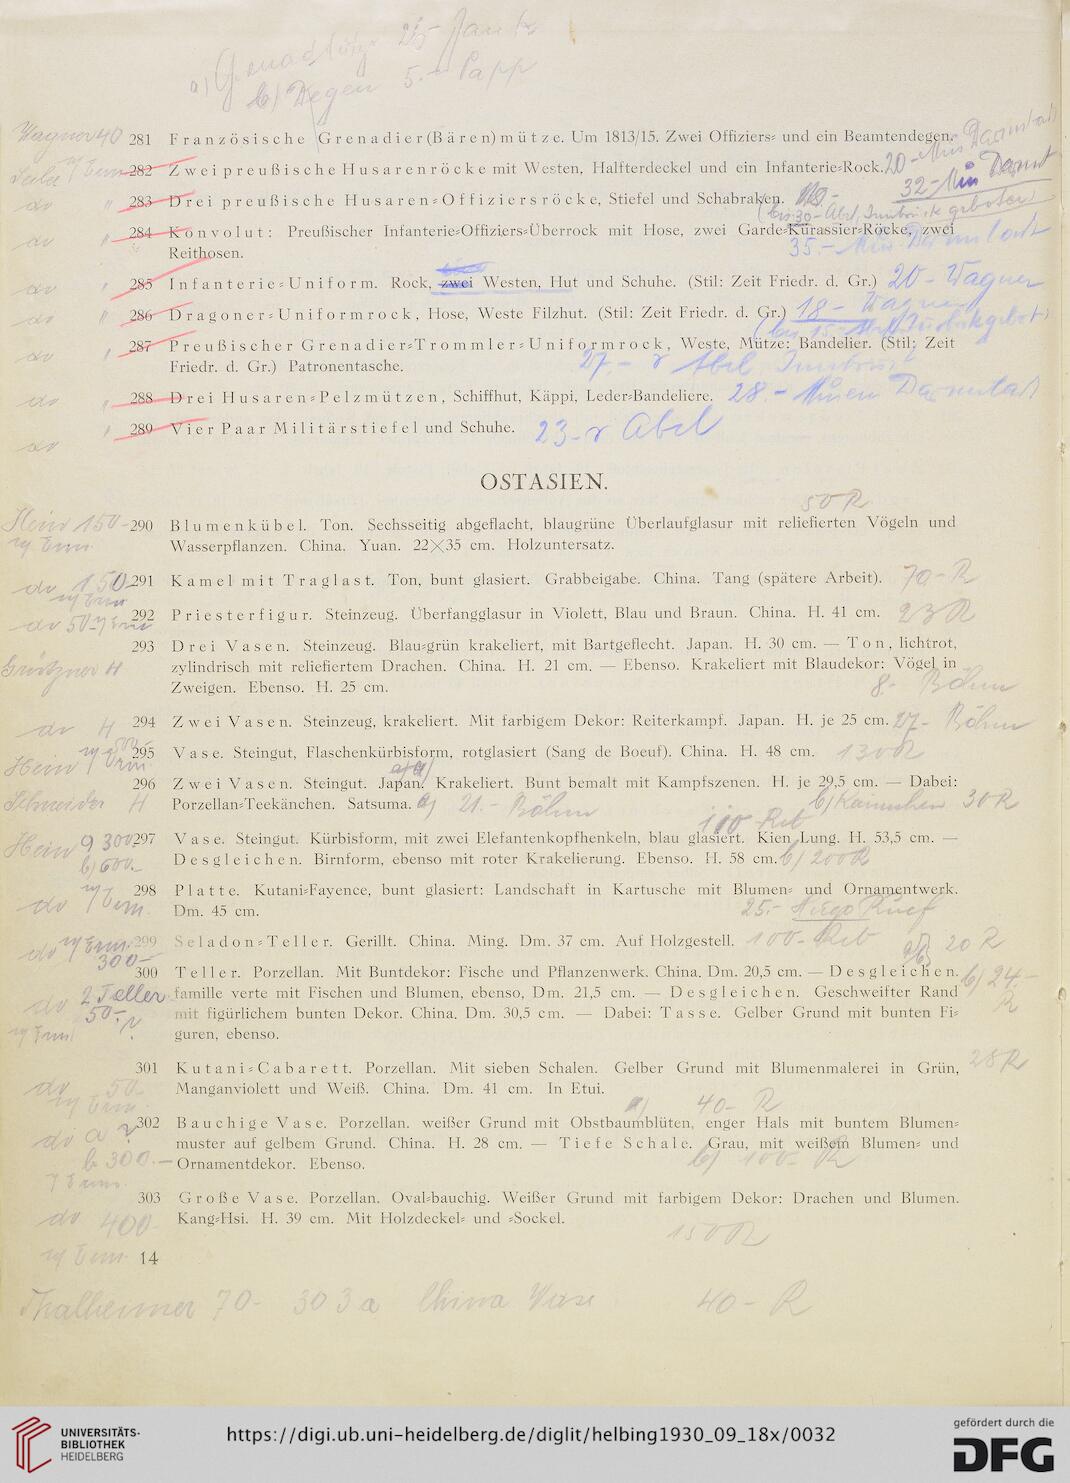 25.- Jank
a) Grenadiermütze
b) Degen 5.- Papp
Wagner 40 281 Französische Grenadier (Bären) mütze. Um 1813/15. Zwei Offiziers- und ein Beamtendegen.
282 Zwei preußische Husarenröcke mit Westen, Halfterdeckel und ein Infanterie-Rock. 20-
32-
283 Drei preußische Husaren-Offiziersröcke, Stiefel und Schabraken.
284 Konvolut: Preußischer Infanterie-Offiziers-Überrock mit Hose, zwei Garde-Kürassier-Röcke, zwei
Reithosen. 35.-
285 Infanterie-Uniform. Rock, zwei Westen, Hut und Schuhe. (Stil: Zeit Friedr. d. Gr.) 20- Wagner
286 Dragoner-Uniformrock, Hose, Weste Filzhut. (Stil: Zeit Friedr. d. Gr.) 18- Wagner
287 Preußischer Grenadier-Trommler-Uniformrock, Weste, Mütze: Bandelier. (Stil: Zeit
Friedr. d. Gr.) Patronentasche. 27.- Abel
288 Drei Husaren-Pelzmützen, Schiffhut, Käppi, Leder-Bandeliere. 28.-
289 Vier Paar Militärstiefel und Schuhe. 23- Abel
OSTASIEN.
50 R
Hein 150- 290 Blumenkübel. Ton. Sechsseitig abgeflacht, blaugrüne Überlaufglasur mit reliefierten Vögeln und
Wasserpflanzen. China. Yuan. 22×35 cm. Holzuntersatz.
do 150 291 Kamel mit Traglast. Ton, bunt glasiert. Grabbeigabe. China. Tang (spätere Arbeit). 70- R
do 50- 292 Priesterfigur. Steinzeug. Überfangglasur in Violett, Blau und Braun. China. H. 41 cm. 23 R
293 Drei Vasen. Steinzeug. Blau-grün krakeliert, mit Bartgeflecht. Japan. H. 30 cm. — Ton, lichtrot,
zylindrisch mit reliefiertem Drachen. China. H. 21 cm. — Ebenso. Krakeliert mit Blaudekor: Vögel in
Zweigen. Ebenso. H. 25 cm. 8.- Böhm
do H 294 Zwei Vasen. Steinzeug, krakeliert. Mit farbigem Dekor: Reiterkampf. Japan. H. je 25 cm. 27- Böhm
Hein 295 Vase. Steingut, Flaschenkürbisform, rotglasiert (Sang de Boeuf). China. H. 48 cm. 130 R
296 Zwei Vasen. Steingut. Japan. Krakeliert. Bunt bemalt mit Kampfszenen. H. je 29,5 cm. — Dabei:
Schneider H Porzellan-Teekänchen. Satsuma. a) 21.- Böhm b) Kännchen 30 R
Hein a 300 297 Vase. Steingut. Kürbisform, mit zwei Elefantenkopfhenkeln, blau glasiert. Kien Lung. H. 53,5 cm. —
b) 600.- Desgleichen. Birnform, ebenso mit roter Krakelierung. Ebenso. H. 58 cm. b) 200 R
298 Platte. Kutani-Fayence, bunt glasiert: Landschaft in Kartusche mit Blumen- und Ornamentwerk.
do Dm. 45 cm. 25.- Hugo Ruef
do 299 Seladon-Teller. Gerillt. China. Ming. Dm. 37 cm. Auf Holzgestell. 100- 20 R
300-
300 Teller. Porzellan. Mit Buntdekor: Fische und Pflanzenwerk. China. Dm. 20,5 cm. — Desgleichen.
do 2 Teller famille verte mit Fischen und Blumen, ebenso, Dm. 21,5 cm. — Desgleichen. Geschweifter Rand b) 24.- R
50.- mit figürlichem bunten Dekor. China. Dm. 30,5 cm. — Dabei: Tasse. Gelber Grund mit bunten Fi-
guren, ebenso.
301 Kutani-Cabarett. Porzellan. Mit sieben Schalen. Gelber Grund mit Blumenmalerei in Grün, 28 R
do 50- Manganviolett und Weiß. China. Dm. 41 cm. In Etui.
a) 40- R
do a 302 Bauchige Vase. Porzellan. weißer Grund mit Obstbaumblüten, enger Hals mit buntem Blumen-
muster auf gelbem Grund. China. H. 28 cm. — Tiefe Schale. Grau, mit weißem Blumen- und
b 300.- Ornamentdekor. Ebenso. b) 100- R
303 Große Vase. Porzellan. Oval-bauchig. Weißer Grund mit farbigem Dekor: Drachen und Blumen.
do 400- Kang-Hsi. H. 39 cm. Mit Holzdeckel- und -Sockel.
150 R
14
Thalheimer 70- 303a China Vase 40- R
UNIVERSITÄTS-
BIBLIOTHEK
HEIDELBERG
https://digi.ub.uni-heidelberg.de/diglit/helbing1930_09_18x/0032
gefördert durch die
DFG